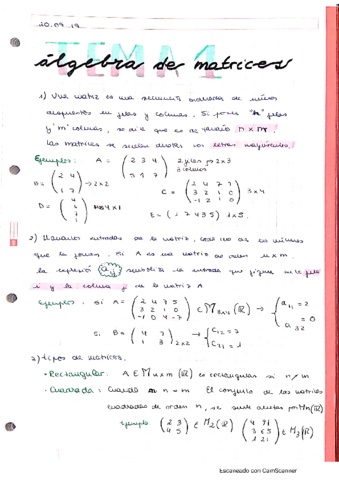 20.09.19
TEMA 1
álgebra de matrices
1) Una matriz es una secuencia ordenada de números
dispuestos en filas y columnas. Si posee "n" filas
y 'm' columnas, se dice que es de tamaño n x m.
las matrices se suelen denotar con letras mayúsculas.
Ejemplos: A = ( 2 3 4 2 filas → 2x3
1 7 ) 3 columnas
B = ( 2 4 → 2x2
1 7 )
C = ( 2 4 7 1
3 2 1 0 3x4
-1 2 1 0 )
D = 4x1
E = ( 7 4 3 5 ) 1x5
2) Llamamos entradas de la matriz, a los números
que la forman. Si A es una matriz de orden n x m,
la expresión aij simboliza la entrada que figura en la fila
i y la columna j de la matriz A
Ejemplos: Si A = ( 2 4 7 5
3 2 1 0 ∈ M3x4 (ℝ) → { a11 = 2
-1 0 4 -7 ) a32 = 0
Si B = ( 4 7 → { C12 = 7
1 3 ) 2x2 C21 = 1
2) tipos de matrices.
• Rectangular: A ∈ M n x m (ℝ) es rectangular si n ≠ m
• Cuadrada: Cuando n = m El conjunto de las matrices
cuadradas de orden n, se suele denotar por Mn(ℝ)
Ejemplo: ( 2 3 ∈ M2 (ℝ) ( 4 7 1
4 5 ) 3 6 5 ∈ M3 (ℝ)
1 2 1 )
Escaneado con CamScanner